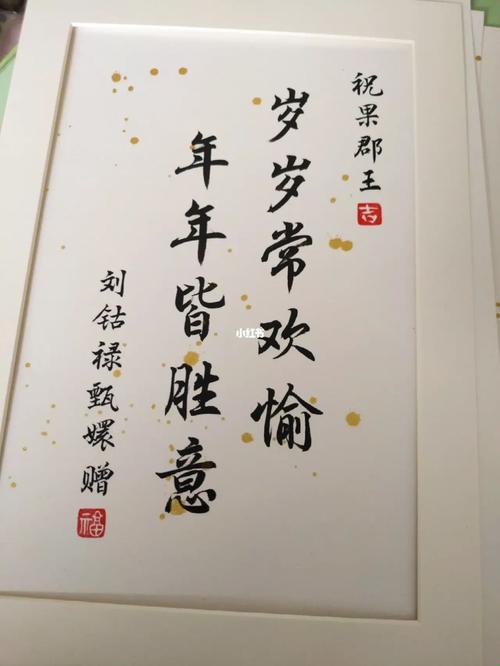 祝果郡王
吉
岁岁常欢愉
年年皆胜意
刘钴禄甄嬛赠
福
小红书